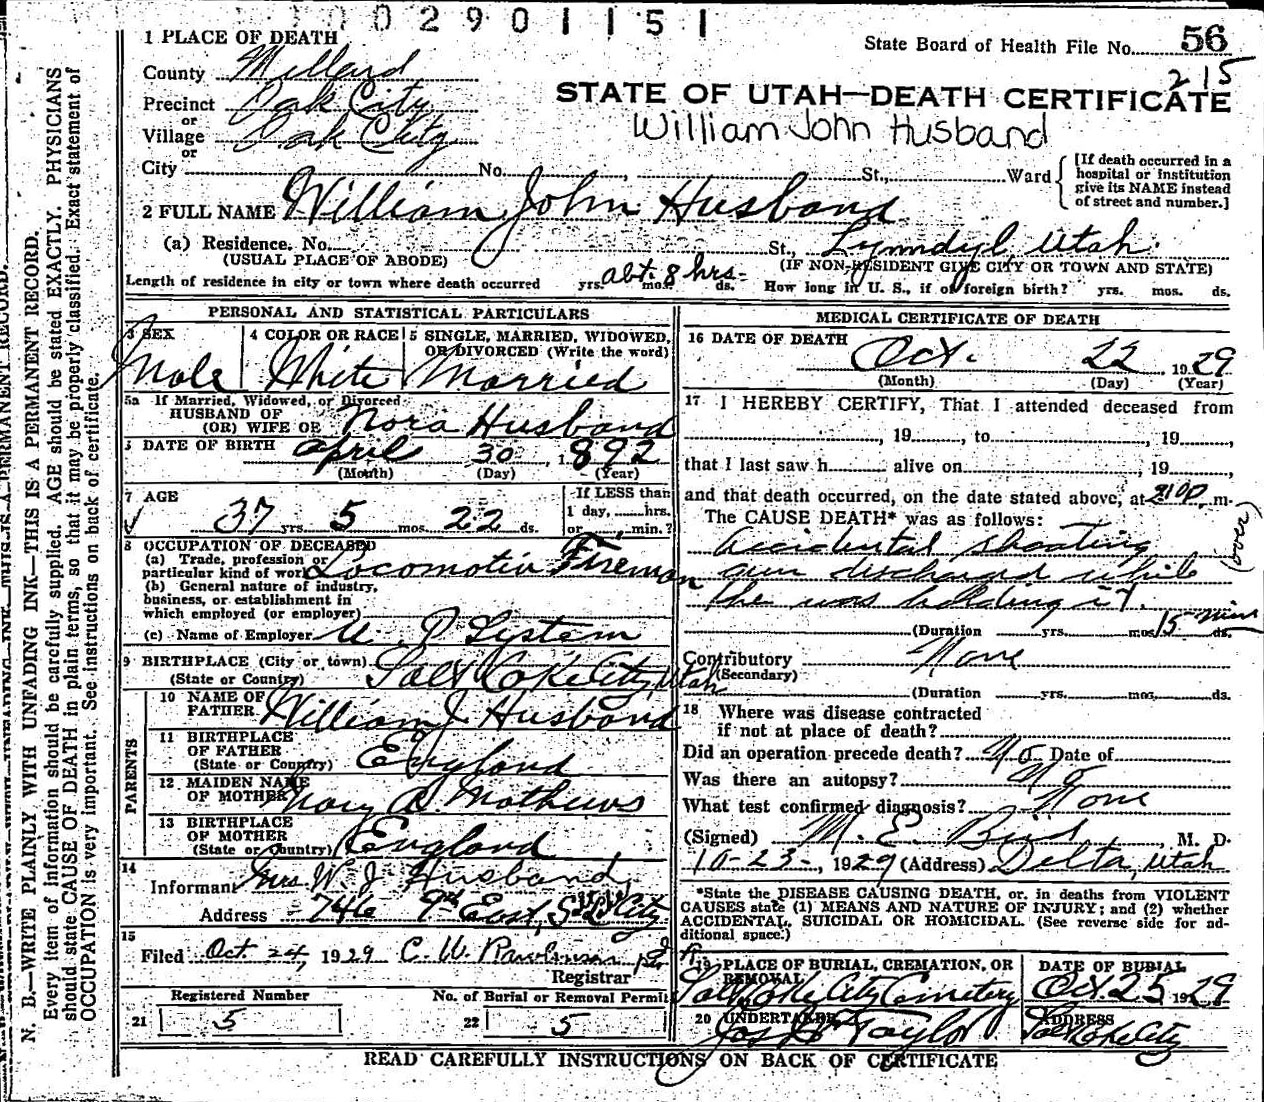 0 0 2 9 0 1 1 5 1
State Board of Health File No. 56
215
STATE OF UTAH—DEATH CERTIFICATE
William John Husband
1 PLACE OF DEATH
County Millard
Precinct Oak City
or
Village Oak City
or
City No. , St., Ward
[If death occurred in a
hospital or institution
give its NAME instead
of street and number.]
2 FULL NAME William John Husband
(a) Residence. No. St., Lynndyl, Utah.
(USUAL PLACE OF ABODE) (IF NON-RESIDENT GIVE CITY OR TOWN AND STATE)
Length of residence in city or town where death occurred yrs. abt. 8 hrs- mos. ds. How long in U. S., if of foreign birth? yrs. mos. ds.
PERSONAL AND STATISTICAL PARTICULARS
3 SEX
Male
4 COLOR OR RACE
White
5 SINGLE, MARRIED, WIDOWED,
OR DIVORCED (Write the word)
Married
5a If Married, Widowed, or Divorced
HUSBAND OF
(OR) WIFE OF Nora Husband
DATE OF BIRTH April 30, 1892
(Month) (Day) (Year)
7 AGE
37 yrs. 5 mos. 22 ds.
If LESS than
1 day, hrs.
or min.?
8 OCCUPATION OF DECEASED
(a) Trade, profession or
particular kind of work Locomotiv Fireman
(b) General nature of industry,
business, or establishment in
which employed (or employer)
(c) Name of Employer U. P. System
9 BIRTHPLACE (City or town)
(State or Country) Salt Lake City, Utah
PARENTS
10 NAME OF
FATHER William J. Husband
11 BIRTHPLACE
OF FATHER
(State or Country) England
12 MAIDEN NAME
OF MOTHER Mary A Mathews
13 BIRTHPLACE
OF MOTHER
(State or Country) England
14
Informant Mrs. W. J. Husband
Address 746 9th East, S L City
15
Filed Oct 24, 1929 C. W. Rawlinson
Registrar
Registered Number
21 5
No. of Burial or Removal Permit
22 5
MEDICAL CERTIFICATE OF DEATH
16 DATE OF DEATH
Oct. 22 1929
(Month) (Day) (Year)
17 I HEREBY CERTIFY, That I attended deceased from
, 19 , to , 19 ,
that I last saw h alive on , 19 ,
and that death occurred, on the date stated above, at 910P m.
The CAUSE DEATH* was as follows:
Accidental shooting
gun discharged while
he was holding it.
(over)
(Duration yrs. mos. 15 mins ds.
Contributory None
(Secondary)
(Duration yrs. mos. ds.
18 Where was disease contracted
if not at place of death?
Did an operation precede death? No Date of
Was there an autopsy? No
What test confirmed diagnosis? None
(Signed) M. E. Bird, M. D.
10-23-, 1929 (Address) Delta, Utah
*State the DISEASE CAUSING DEATH, or, in deaths from VIOLENT
CAUSES state (1) MEANS AND NATURE OF INJURY; and (2) whether
ACCIDENTAL, SUICIDAL OR HOMICIDAL. (See reverse side for ad-
ditional space.)
19 PLACE OF BURIAL, CREMATION, OR
REMOVAL
Salt Lake City Cemetery
DATE OF BURIAL
Oct. 25 1929
20 UNDERTAKER
Jos Taylor
ADDRESS
Salt Lake City
READ CAREFULLY INSTRUCTIONS ON BACK OF CERTIFICATE
N. B.—WRITE PLAINLY WITH UNFADING INK—THIS IS A PERMANENT RECORD.
Every item of information should be carefully supplied. AGE should be stated EXACTLY. PHYSICIANS
should state CAUSE OF DEATH in plain terms, so that it may be properly classified. Exact statement of
OCCUPATION is very important. See instructions on back of certificate.